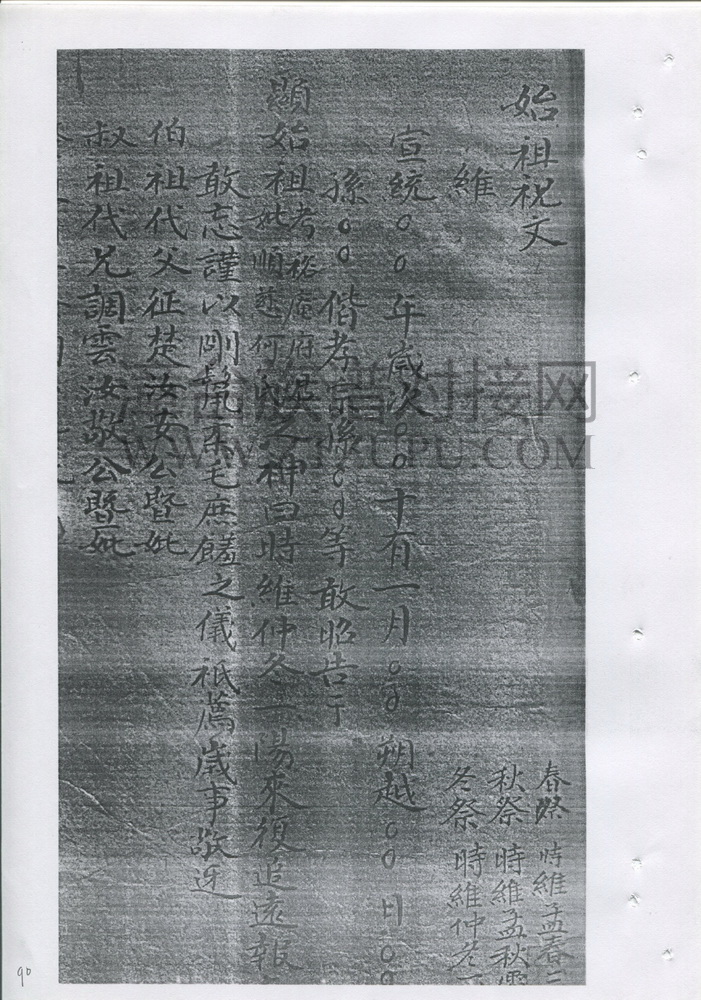 始祖祝文
維
春祭 時維孟春
秋祭 時維孟秋
冬祭 時維仲冬
宣統○○年歲次○○十有一月○○朔越○○日○○
孫○○偕孝宗孫○○等敢昭告于
顯始祖考 府君
妣順慈何氏之神曰時維仲冬一陽來復追遠報
敢忘謹以剛鬣柔毛庶饈之儀祗薦歲事敬迓
伯祖代父征楚汝安公暨妣
叔祖代兄調雲汝敬公暨妣
90